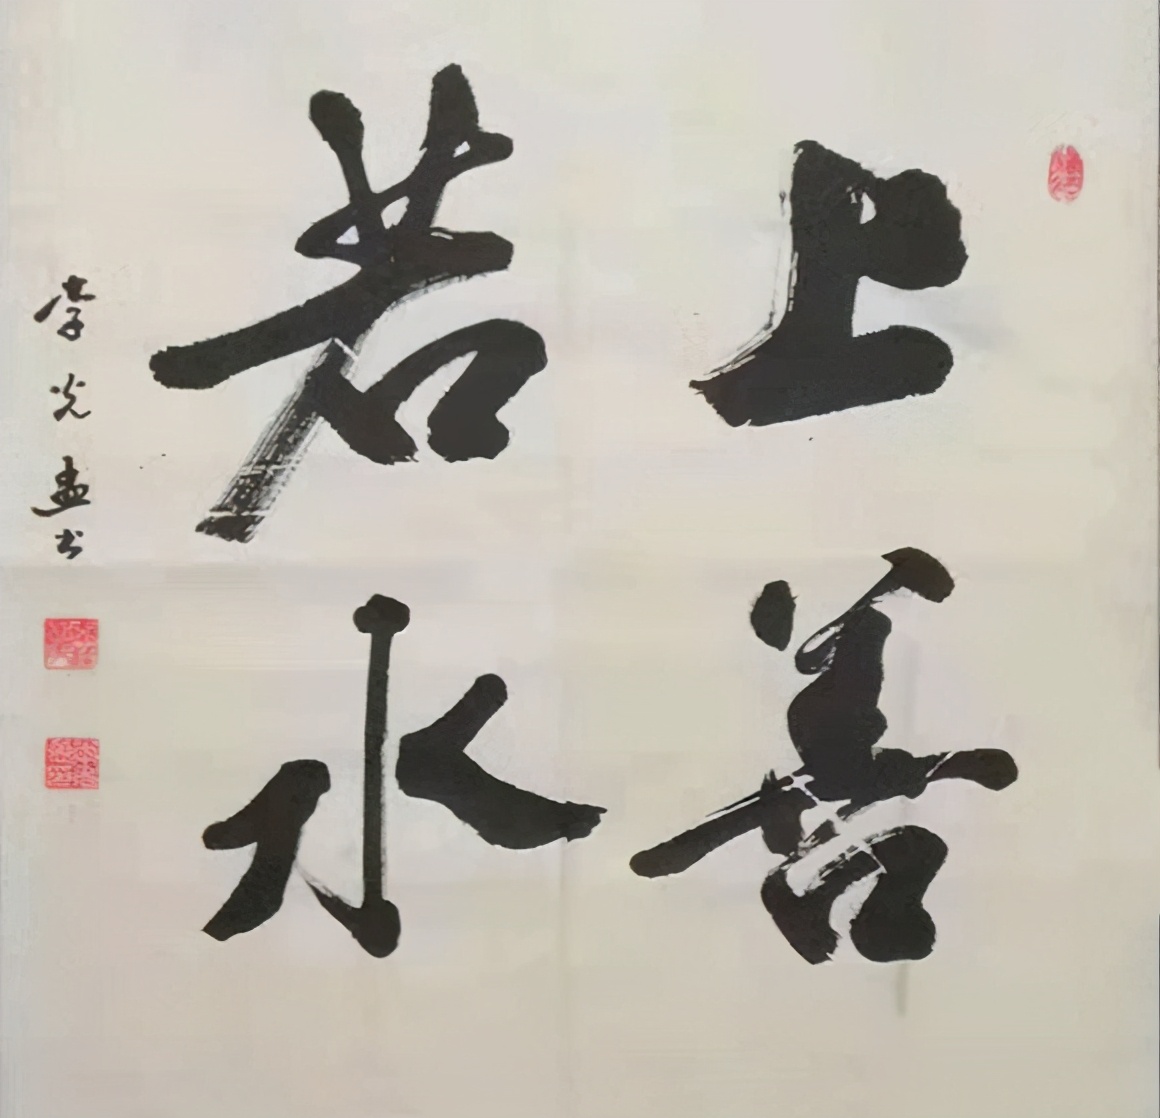 上善
若水
李光孟书